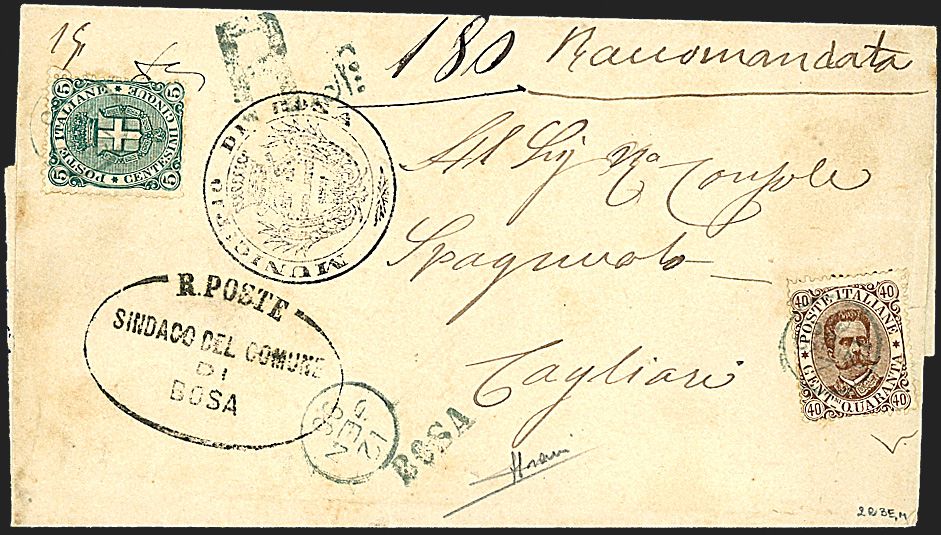 180 Raccomandata
R
POSTE ITALIANE
CENTESIMI CINQUE
5 5 5 5
MUNICIPIO DI BOSA
Al Sig No Console
Spagnuolo
Cagliari
R. POSTE
SINDACO DEL COMUNE
DI
BOSA
POSTE ITALIANE
CENT.MI QUARANTA
40 40 40 40
12
GEN
BOSA